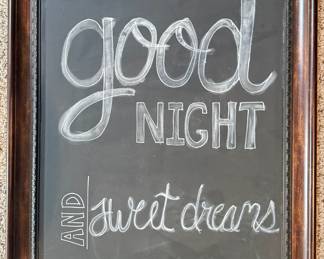 good
NIGHT
AND sweet dreams